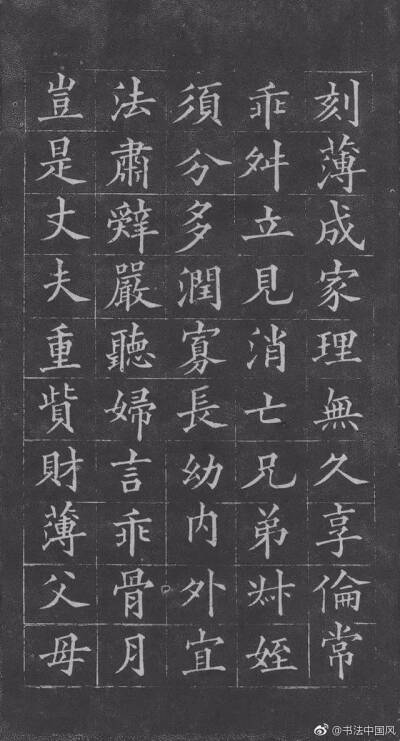 刻薄成家理無久享倫常
乖舛立見消亡兄弟叔姪
須分多潤寡長幼内外宜
法肅辭嚴聽婦言乖骨月
豈是丈夫重貲財薄父母
@书法中国风